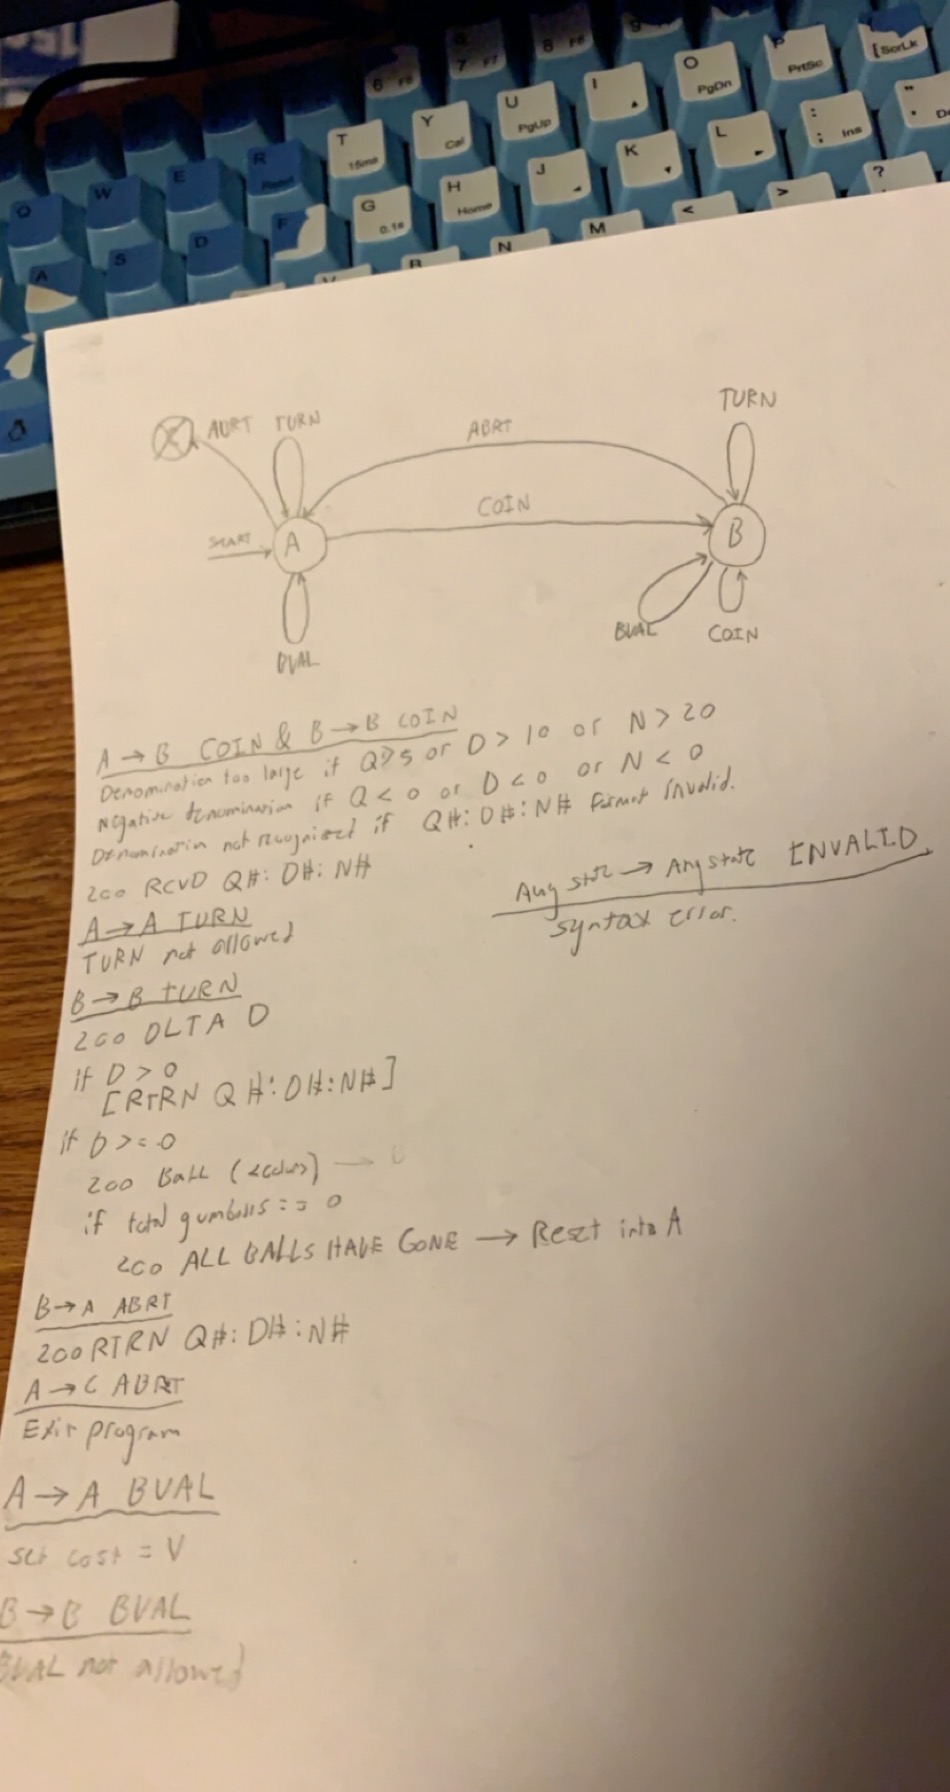 6 F6
7 F7
8 F8
9
O
PgDn
P
PrtSc
[ScrLk
Q
W
E
R
Reset
T
15ms
Y
Cal
U
PgUp
I
A
S
D
F
G
0.1s
H
Home
J
K
L
: ;
Ins
"
'
V
B
N
M
<
>
?
ABRT
TURN
ABRT
TURN
START
A
COIN
B
BVAL
BVAL
COIN
A → B COIN & B → B COIN
Denomination too large if Q > 5 or D > 10 or N > 20
Negative denomination if Q < 0 or D < 0 or N < 0
Denomination not recognized if Q#:D#:N# format invalid.
200 RCVD Q#: D#: N#
Any state → Any state INVALID
syntax error.
A → A TURN
TURN not allowed
B → B TURN
200 DLTA D
if D > 0
[RTRN Q#:D#:N#]
if D >= 0
200 Ball (<color>) → B
if total gumballs == 0
200 ALL BALLS HAVE GONE → Reset into A
B → A ABRT
200 RTRN Q#: D#: N#
A → C ABRT
Exit program
A → A BVAL
set cost = V
B → B BVAL
BVAL not allowed